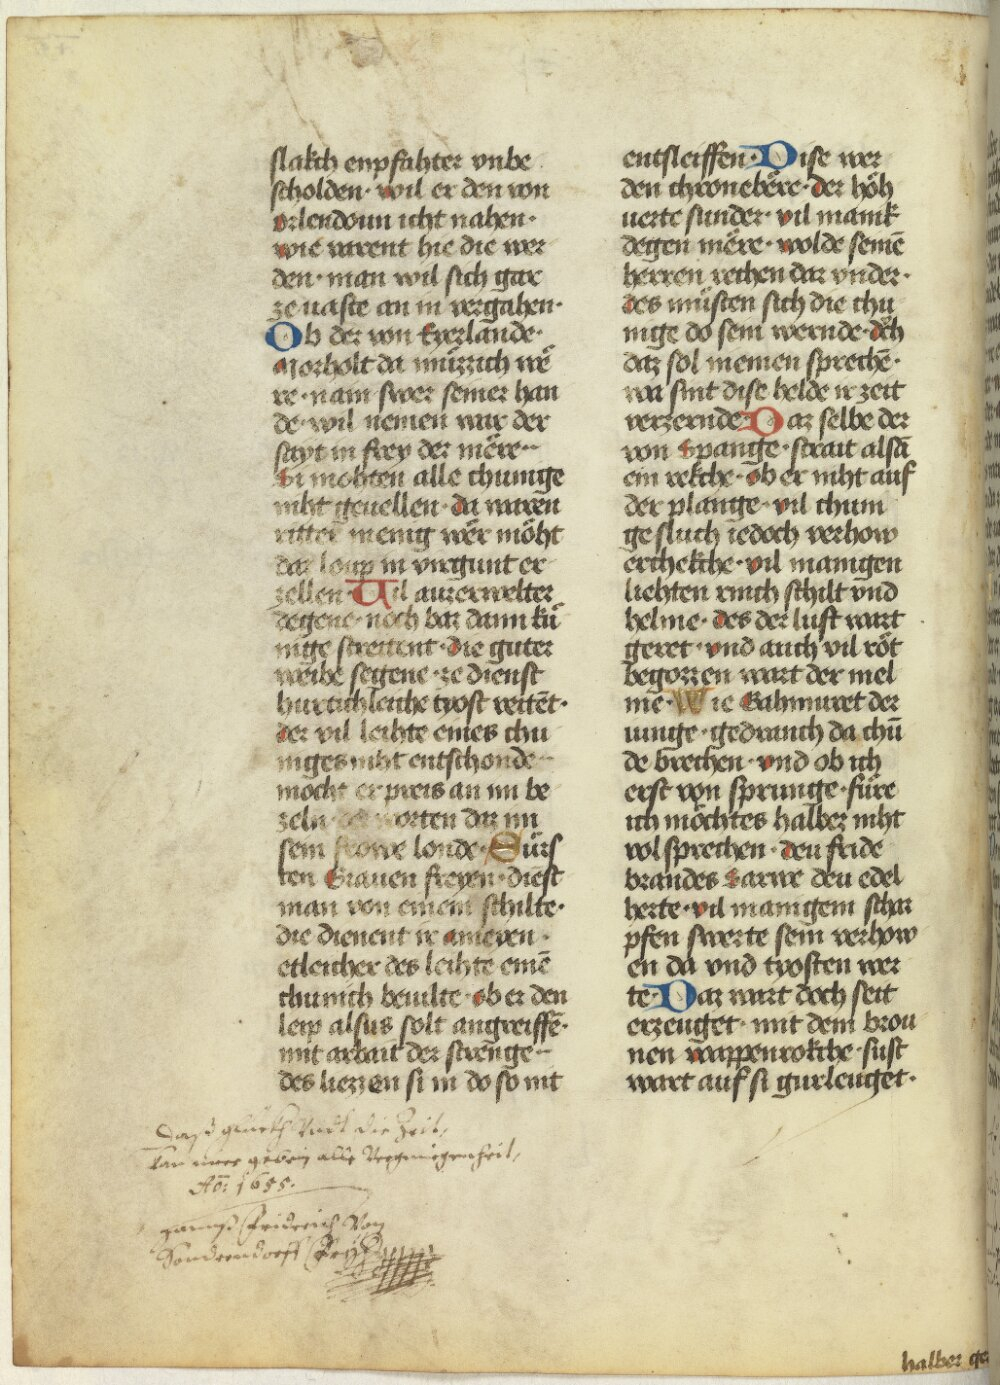 slakch enpfahter vnbe
scholden· wil er den von
orlendoun icht nahen·
wie varent hie die wer
den· man wil sich gar
ze uaste an in vergahen·
Ob der von Eyerlande·
Morholt da muͤzzich weͤ
re· nain swer seiner han
de· wil nemen war der
sayt in frey der meͤre··
Si mohten alle chunige
niht geuellen· da waren
ritter menig weͤr moͤht
daz loup in virgunt er
zellen· Uil auzerwelter
degene· noch baz dann kuͤ
nige streitent· die guter
weibe segene· ze dienst
hurtichleiche tyost reitēt·
der vil leihte eines chu
niges niht entschonde··
mocht er preis an im be
zeln· den worten daz im
sein frowe londe· Fuͤrs
ten Grauen freyen· dienst
man von einem schilte·
die dienent ir ameyen·
etleicher des leihte einē
chunich beuilte· ob er den
leip alsus solt angreiffē·
mit arbait der strenge··
des liezzen si in do so nit
entsleiffen· Dise wer
den chronebeͤre· der hoͤh
uerte sunder· vil manik
degen meͤre· wolde seinē
herren rechen dar vnder·
des muͤsten sich die chu
nige do sein wernde· doͤh
daz sol niemen sprechē·
wa sint dise helde ir zeit
verzernde· Daz selbe der
von Spange· strait alsā
ein rekche· ob er niht auf
der plange· vil chuni
ge sluch iedoch verhow
erchekche· vil manigen
liehten rinch schilt vnd
helme· des der luft wart
geret· vnd auch vil roͤt
begozzen wart der mel
me· Wie Gahmuret der
iunge· gedranch da chū
de brechen· vnd ob ich
erst von sprunge· fuͤre
ich moͤchtes halber niht
vol sprechen· deu feide
brandes Sarwe deu edel
herte· vil manigem schar
pfen swerte sein verhow
en da vnd tyosten wer
te· Daz wart doch seit
erzeuget· mit dem brou
nen wappenrokche· sust
wart auf si gurleuget·
Daß glückh Vndt die Zeit,
kan mier geben alle Vergnügenheit,
Ao: 1655.
Fridrich Von
halber ge